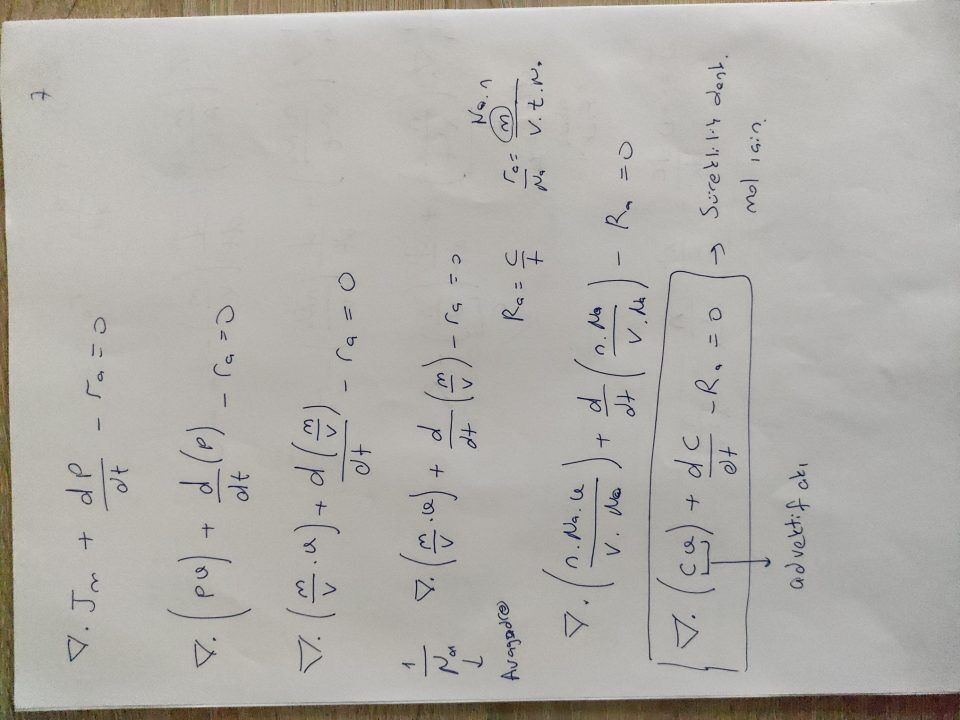 7
∇. Jm + dρ/dt - ra = 0
∇. (ρu) + d/dt (ρ) - ra = 0
∇. (m/v . u) + d(m/v)/dt - ra = 0
1/Na ∇. (m/v . u) + d/dt (m/v) - ra = 0
Avagadro
Ra = C/t
ra/Na = m/V.t.Na
Na.n
∇. (n.Na.u/V.Na) + d/dt (n.Na/V.Na) - Ra = 0
∇. (cu) + dC/dt - Ra = 0 → Süreklilik denk.
mol için.
advektif akı